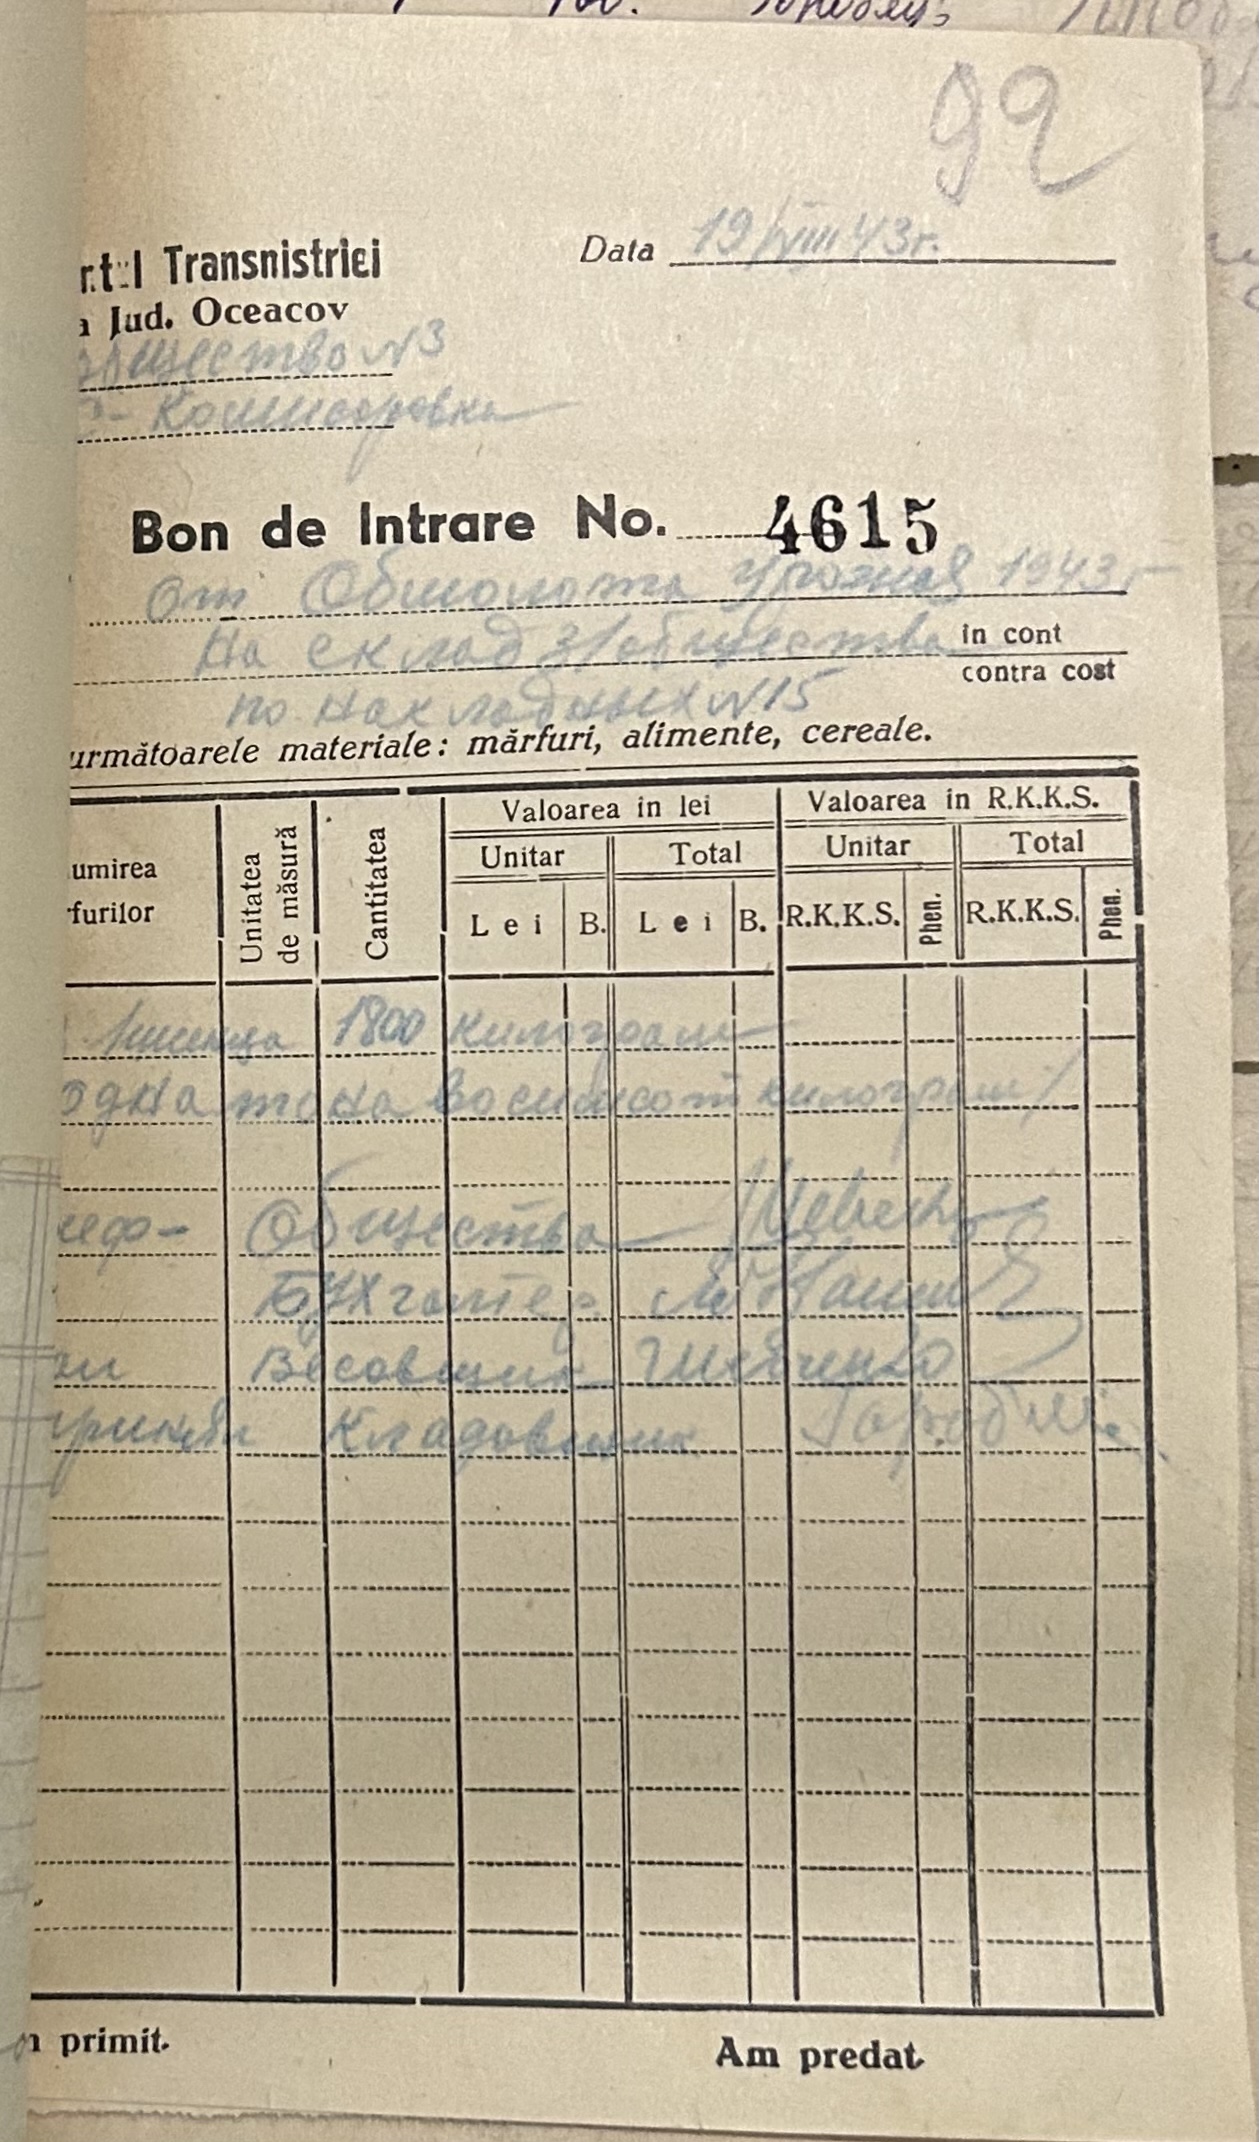 92
Transnistriei
Data 19/VIII 43г.
Jud. Oceacov
№3
Комисаровка
Bon de Intrare No. 4615
от Обмолота урожая 1943 г
на склад з/общества in cont
contra cost
по накладных №15
următoarele materiale: mărfuri, alimente, cereale.
umirea
furilor
Unitatea de măsură
Cantitatea
Valoarea in lei
Valoarea in R.K.K.S.
Unitar Total Unitar Total
Lei B. Lei B. R.K.K.S. Phen. R.K.K.S. Phen.
Пшеница 1800 килограм
одна тона восемьсот килограм/
Общества
Бухгалтер
Весовщик Шевченко
Кладовщик
primit.
Am predat.